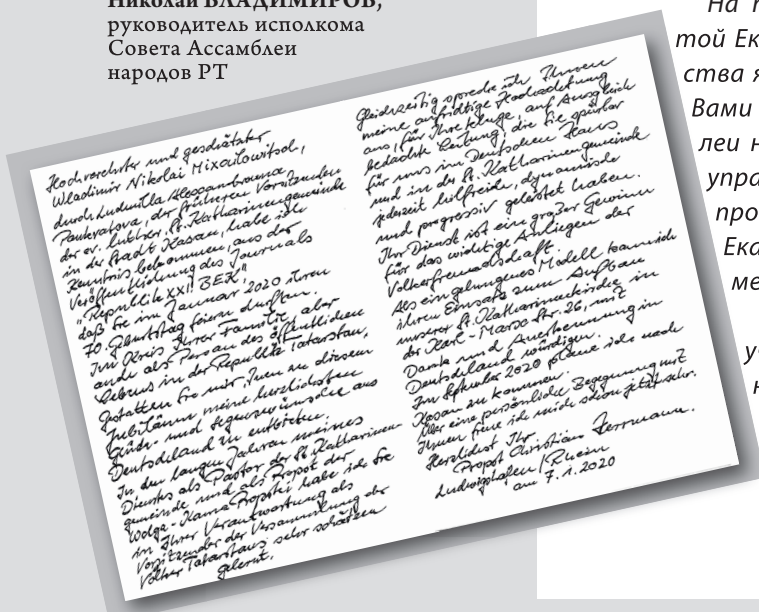 Николай ВЛАДИМИРОВ,
руководитель исполкома
Совета Ассамблеи
народов РТ
Hochverehrter und geschätzter
Wladimir Nikolai Mixailowitsch,
durch Ludmilla Alexxandrowna
Pankratova, der früheren Vorsitzenden
der ev. luther. St. Katharinengemeinde
in der Stadt Kasan, habe ich
Kenntnis bekommen, aus der
Veröffentlichung des Journals
"Republik XXI BEK"
daß Sie im Januar 2020 ihren
70. Geburtstag feiern durften.
Im Kreis Ihrer Familie, aber
auch als Person des öffentlichen
Lebens in der Republik Tatarstan.
Gestatten Sie mir, Ihnen zu diesem
Jubiläum meine herzlichsten
Glück- und Segenswünsche aus
Deutschland zu entbieten.
In den langen Jahren meines
Dienstes als Pastor der St. Katharinen
gemeinde und als Propst der
Wolga-Kama Propstei habe ich Sie
in Ihrer Verantwortung als
Vorsitzender der Versammlung der
Völker Tatarstans sehr schätzen
gelernt.
Gleichzeitig spreche ich Ihnen
meine aufrichtige Hochachtung
aus, für Ihre kluge, auf Ausgleich
bedachte Leitung, die Sie spürbar
für uns im Deutschen Haus
und in der St. Katharinengemeinde
jederzeit hilfreich, dynamisch
und progressiv geleistet haben.
Ihr Dienst ist ein großer Gewinn
für das wichtige Anliegen der
Völkerfreundschaft.
Als ein gelungenes Modell kann ich
ihren Einsatz zum Aufbau
unserer St. Katharinenkirche in
der Karl-Marx-Str. 26, mit
Dank und Anerkennung in
Deutschland würdigen.
Im September 2020 plane ich nach
Kasan zu kommen.
Über eine persönliche Begegnung mit
Ihnen freue ich mich schon jetzt sehr.
Herzlichst Ihr
Propst Christian Herrmann.
Ludwigshafen/Rhein
am 7.1.2020
На
той Ек
ства я
Вами
леи н
упра
про
Ека
ме